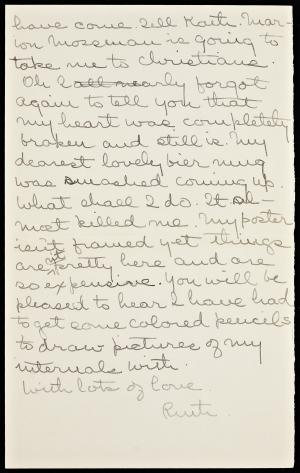 have come. Tell Kath. Mar-
ion Mossman is going to
take me to Christians.
Oh I all nearly forgot
again to tell you that
my heart was completely
broken and still is. My
dearest lovely bier mug
was smashed coming up.
What shall I do. It al-
most killed me. My poster
isn't framed yet things
aren't pretty here and are
so expensive. You will be
pleased to hear I have had
to get some colored pencils
to draw pictures of my
internals with.
With lots of love.
Ruth.